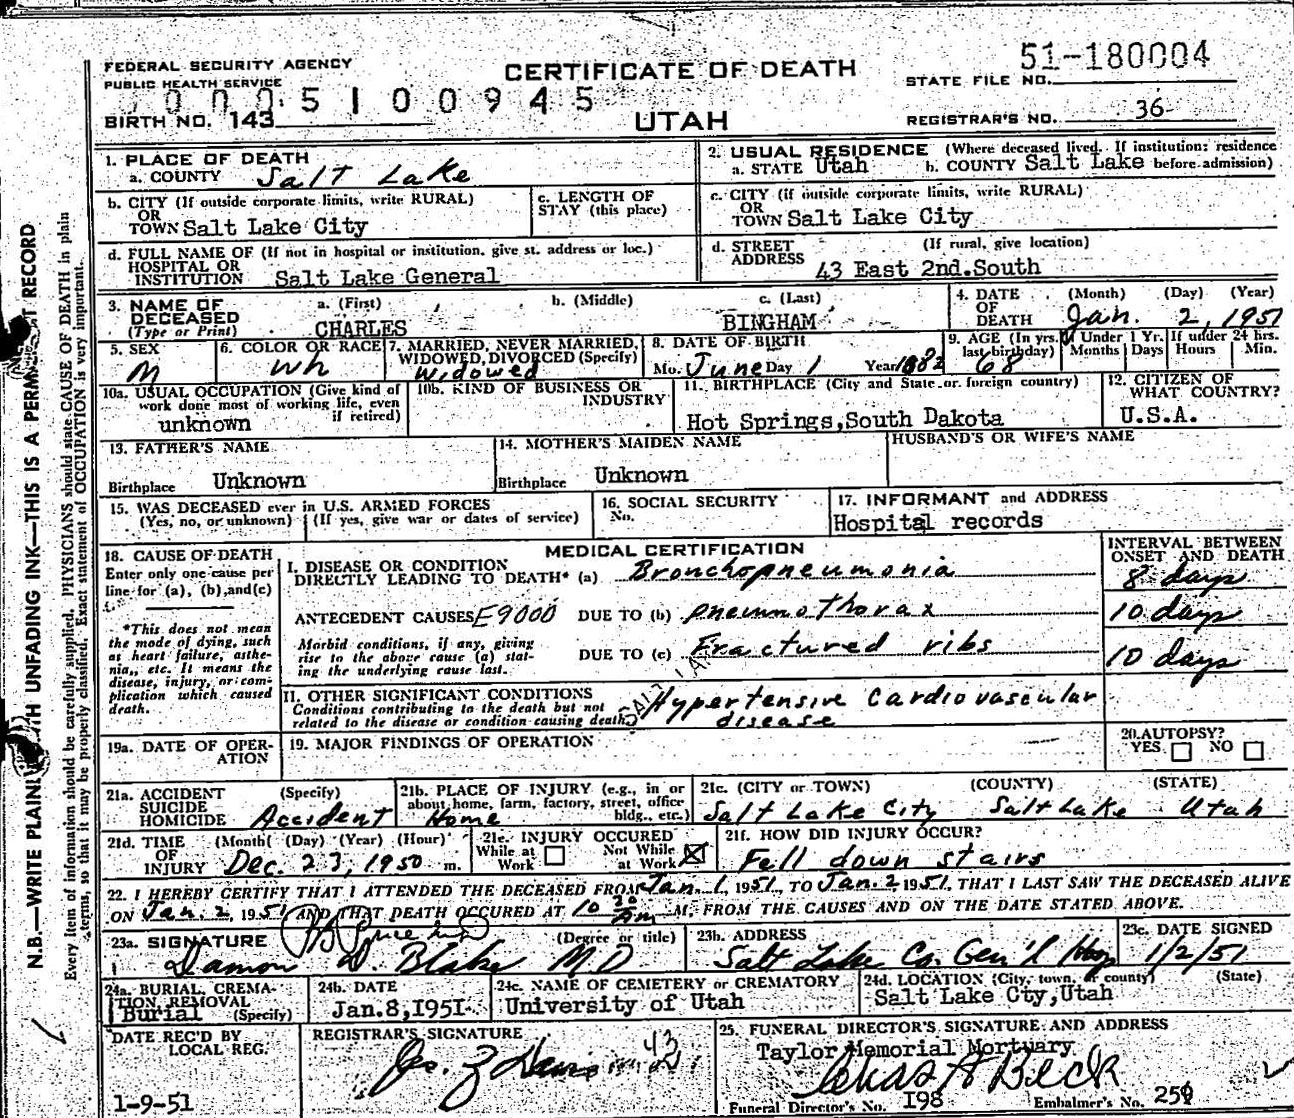 51-180004
FEDERAL SECURITY AGENCY
PUBLIC HEALTH SERVICE
CERTIFICATE OF DEATH
STATE FILE NO.
0005100945
BIRTH NO. 143
UTAH
REGISTRAR'S NO. 36
1. PLACE OF DEATH
a. COUNTY Salt Lake
2. USUAL RESIDENCE (Where deceased lived. If institution: residence before admission)
a. STATE Utah b. COUNTY Salt Lake
b. CITY (If outside corporate limits, write RURAL)
OR
TOWN Salt Lake City
c. LENGTH OF
STAY (this place)
c. CITY (If outside corporate limits, write RURAL)
OR
TOWN Salt Lake City
d. FULL NAME OF (If not in hospital or institution, give st. address or loc.)
HOSPITAL OR
INSTITUTION Salt Lake General
d. STREET (If rural, give location)
ADDRESS 43 East 2nd.South
3. NAME OF
DECEASED
(Type or Print)
a. (First) b. (Middle) c. (Last)
CHARLES BINGHAM
4. DATE
OF
DEATH
(Month) (Day) (Year)
Jan. 2, 1951
5. SEX
M
6. COLOR OR RACE
Wh
7. MARRIED, NEVER MARRIED,
WIDOWED, DIVORCED (Specify)
Widowed
8. DATE OF BIRTH
Mo. June Day 1 Year 1882
9. AGE (In yrs.
last birthday)
68
If Under 1 Yr.
Months Days
If under 24 hrs.
Hours Min.
10a. USUAL OCCUPATION (Give kind of
work done most of working life, even
if retired)
unknown
10b. KIND OF BUSINESS OR
INDUSTRY
11. BIRTHPLACE (City and State or foreign country)
Hot Springs, South Dakota
12. CITIZEN OF
WHAT COUNTRY?
U.S.A.
13. FATHER'S NAME
Birthplace Unknown
14. MOTHER'S MAIDEN NAME
Birthplace Unknown
HUSBAND'S OR WIFE'S NAME
15. WAS DECEASED ever in U.S. ARMED FORCES
(Yes, no, or unknown) (If yes, give war or dates of service)
16. SOCIAL SECURITY
No.
17. INFORMANT and ADDRESS
Hospital records
18. CAUSE OF DEATH
Enter only one cause per
line for (a), (b), and (c)
*This does not mean
the mode of dying, such
as heart failure, asthe-
nia, etc. It means the
disease, injury, or com-
plication which caused
death.
MEDICAL CERTIFICATION
I. DISEASE OR CONDITION
DIRECTLY LEADING TO DEATH* (a) Bronchopneumonia
ANTECEDENT CAUSES E9000 DUE TO (b) pneumothorax
Morbid conditions, if any, giving
rise to the above cause (a) stat-
ing the underlying cause last.
DUE TO (c) Fractured ribs
II. OTHER SIGNIFICANT CONDITIONS
Conditions contributing to the death but not
related to the disease or condition causing death.
Hypertensive Cardiovascular
disease
INTERVAL BETWEEN
ONSET AND DEATH
8 days
10 days
10 days
19a. DATE OF OPER-
ATION
19. MAJOR FINDINGS OF OPERATION
20. AUTOPSY?
YES NO
21a. ACCIDENT (Specify)
SUICIDE
HOMICIDE Accident
21b. PLACE OF INJURY (e.g., in or
about home, farm, factory, street, office
bldg., etc.)
Home
21c. (CITY or TOWN) (COUNTY) (STATE)
Salt Lake City Salt Lake Utah
21d. TIME (Month) (Day) (Year) (Hour)
OF
INJURY Dec. 23, 1950 m.
21e. INJURY OCCURED
While at Not While
Work at Work
21f. HOW DID INJURY OCCUR?
Fell down stairs
22. I HEREBY CERTIFY THAT I ATTENDED THE DECEASED FROM Jan. 1, 1951, TO Jan. 2 1951, THAT I LAST SAW THE DECEASED ALIVE
ON Jan. 2, 1951 AND THAT DEATH OCCURED AT 10 20 pm M, FROM THE CAUSES AND ON THE DATE STATED ABOVE.
23a. SIGNATURE (Degree or title)
Damon D. Blake MD
23b. ADDRESS
Salt Lake Co. Gen'l Hosp
23c. DATE SIGNED
1/2/51
24a. BURIAL, CREMA-
TION, REMOVAL
Burial (Specify)
24b. DATE
Jan.8,1951
24c. NAME OF CEMETERY OR CREMATORY
University of Utah
24d. LOCATION (City, town, county) (State)
Salt Lake Cty, Utah
DATE REC'D BY
LOCAL REG.
1-9-51
REGISTRAR'S SIGNATURE
25. FUNERAL DIRECTOR'S SIGNATURE AND ADDRESS
Taylor Memorial Mortuary
Chas A Beck
Funeral Director's No. 198 Embalmer's No.
N.B.—WRITE PLAINLY WITH UNFADING INK—THIS IS A PERMANENT RECORD
Every item of information should be carefully supplied. PHYSICIANS should state CAUSE OF DEATH in plain
terms, so that it may be properly classified. Exact statement of OCCUPATION is very important.